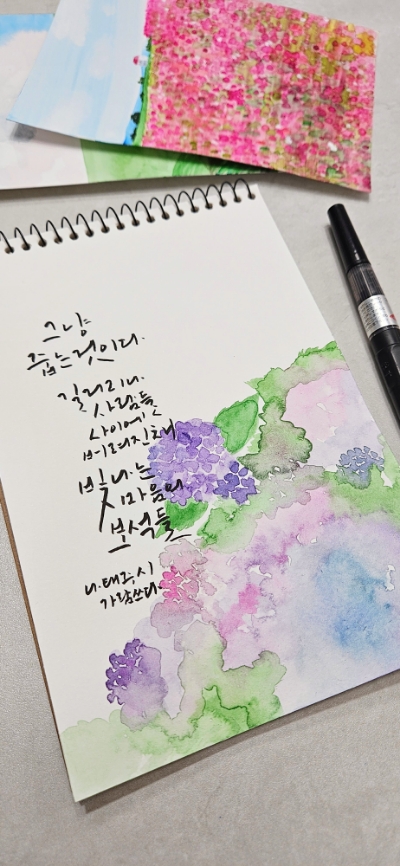 그냥
줍는것이다.
길거리나.
사람들
사이에
버려진채
빛나는
마음의
보석들
나.태주.시
가람쓰다.